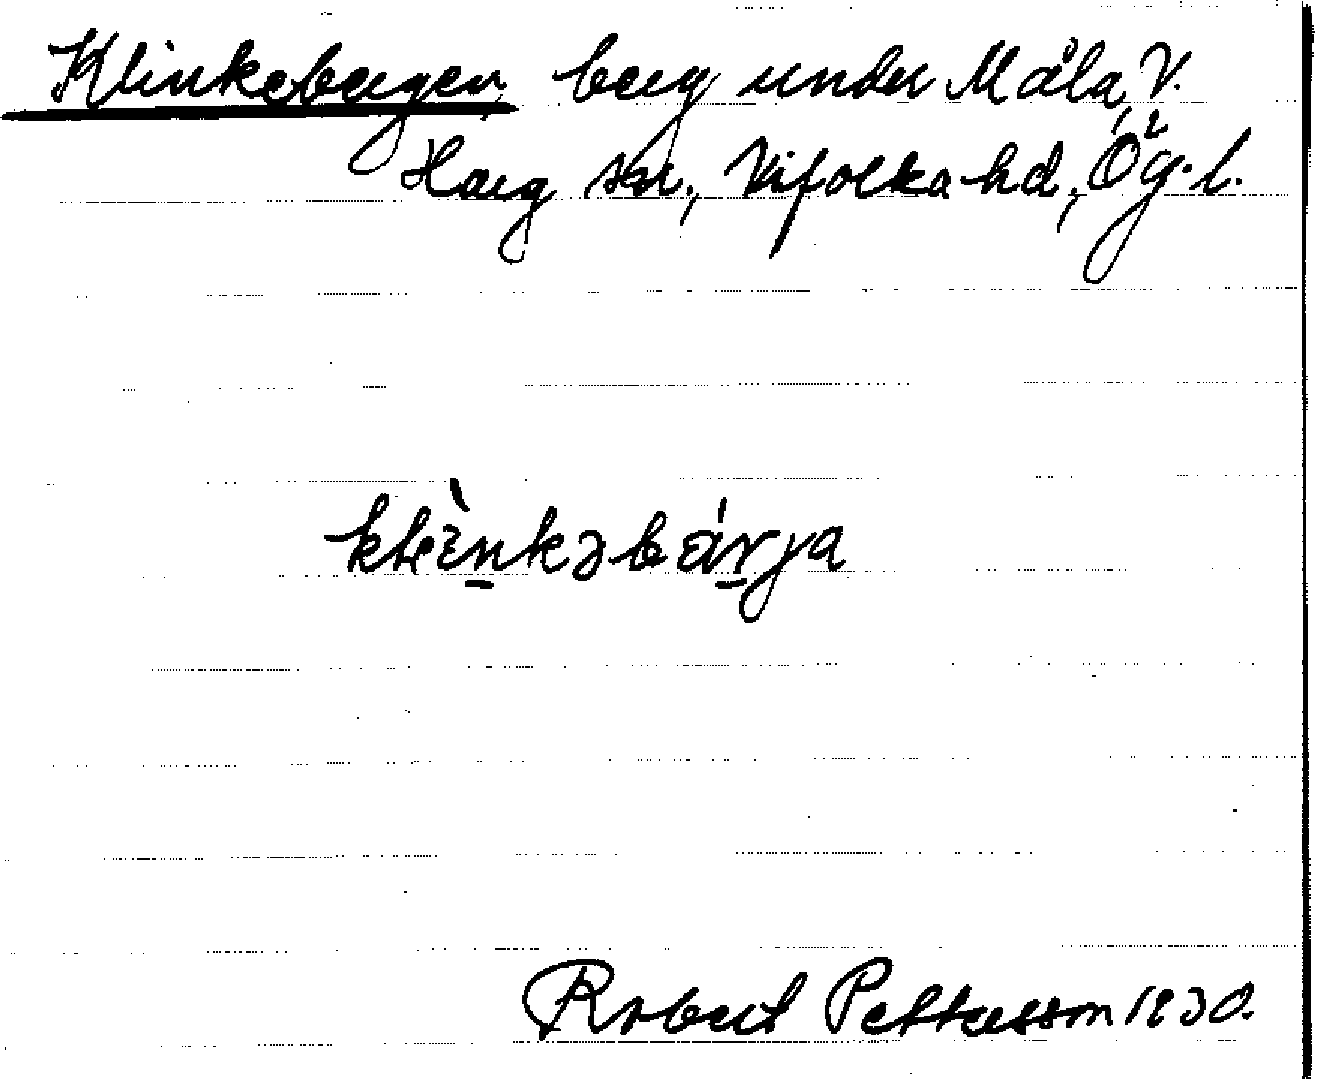 Klinkebergen, berg under Måla, V.
Harg sn., Vifolka hd, Ög. l.
klìnkəbǽrya
Robert Pettersson 1930.